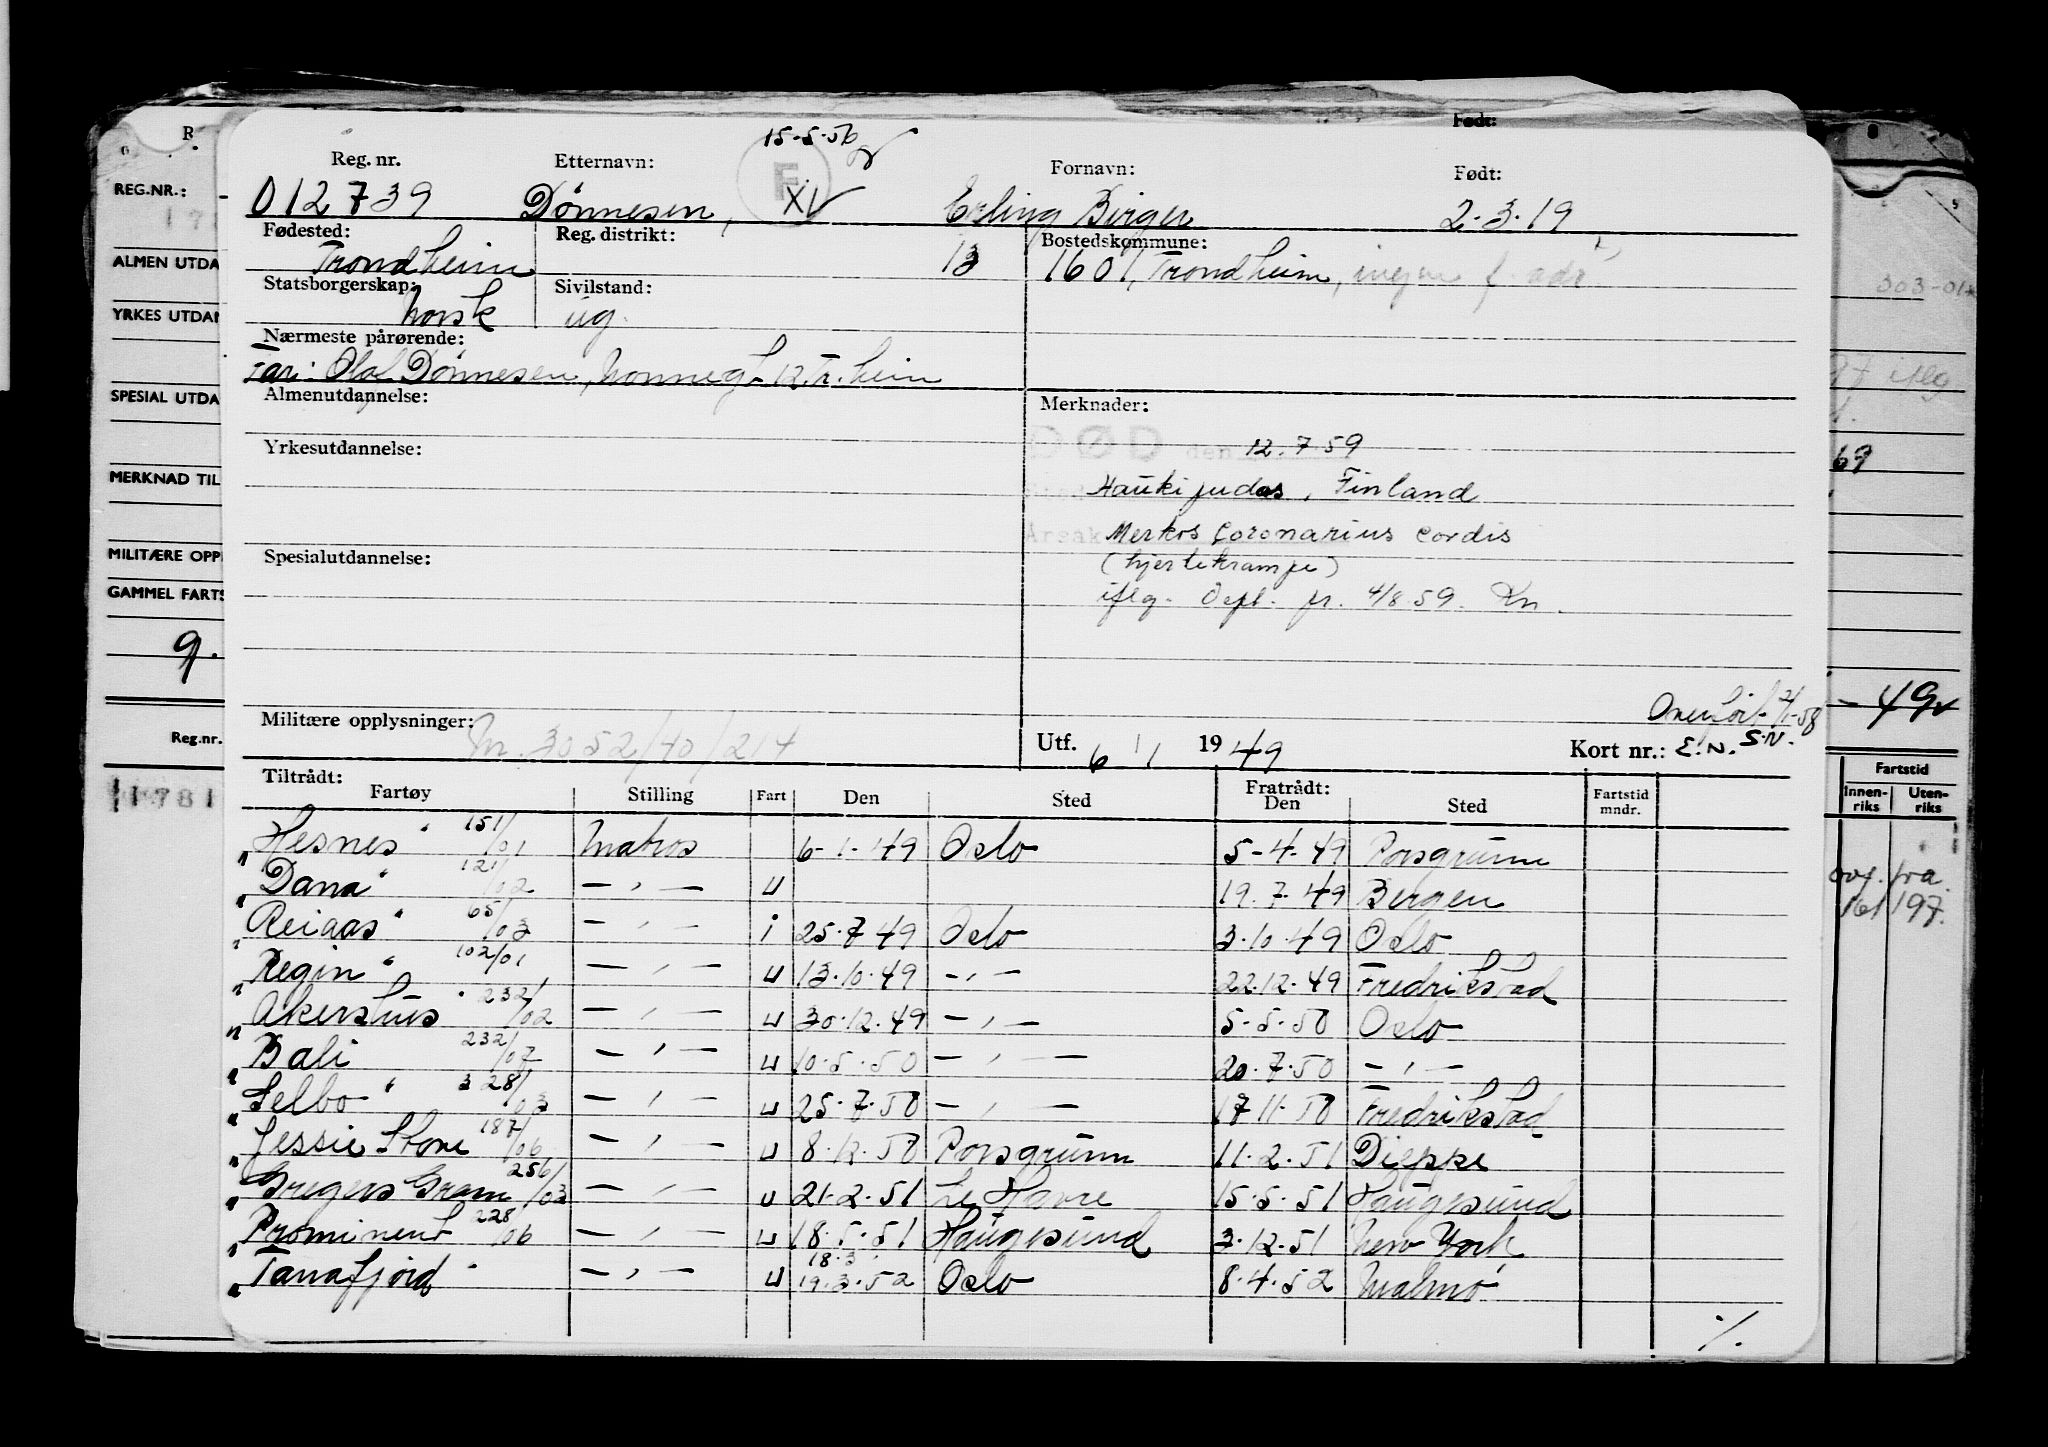 15-5-56
Født:
Reg. nr. Etternavn: F Fornavn: Født:
012739 Dönnesen, XV Erling Birger 2.3.19
Fødested: Reg. distrikt: Bostedskommune:
Trondheim 13 1601, Trondheim, ingen f. adr.
Statsborgerskap: Sivilstand:
norsk ug.
Nærmeste pårørende:
Far: Olaf Dönnesen, 12 Tr.heim
Almenutdannelse: Merknader:
DØD den 12.7.59
Yrkesutdannelse:
Haukipudas, Finland
Årsak Merkos Coronarius Cordis
Spesialutdannelse: (hjertekrampe)
iflg. Depl. fr. 4/8.59. Kn.
Overført 2/1-58
Militære opplysninger: M. 3052/40/214
Utf. 6/1 1949 Kort nr.: E.N. S.N.
Tiltrådt: Fratrådt:
Fartøy Stilling Fart Den Sted Den Sted Fartstid mndr.
"Hesnes" 151/01 Matros 6-1-49 Oslo 5-4-49 Porsgrunn
"Dana" 121/02 — " — u 19.7.49 Bergen
"Reiaas" 65/03 — " — i 25.7.49 Oslo 3.10.49 Oslo
"Regin" 102/01 — " — u 13.10.49 — " — 22.12.49 Fredrikstad
"Akershus" 232/02 — " — u 30.12.49 — " — 5-5-50 Oslo
"Bali 232/07 — " — u 10.5.50 — " — 20.7.50 — " —
"Selbo" 328/03 — " — u 25.7.50 — " — 17.11.50 Fredrikstad
"Jessie Stove 187/06 — " — u 8.12.50 Porsgrunn 11.2.51 Dieppe
"Gregers Gram 256/03 — " — u 21.2.51 Le Havre 15.5.51 Haugesund
"Prominent 228/06 — " — u 18.5.51 Haugesund 3.12.51 New York
18.3
"Tanafjord" — " — u 19.3.52 Oslo 8.4.52 Malmö
%
R
REG.NR.:
178
ALMEN UTDA
YRKES UTDAN
SPESIAL UTDA
MERKNAD TIL
MILITÆRE OPPL
GAMMEL FARTS
9.
Reg.nr.
1781
303-01
iflg
69
-49
Fartstid
Innen-riks Uten-riks
ovf. fra.
161 197